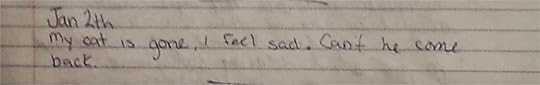 Jan 2th
My cat is gone, I feel sad. Can't he come
back.